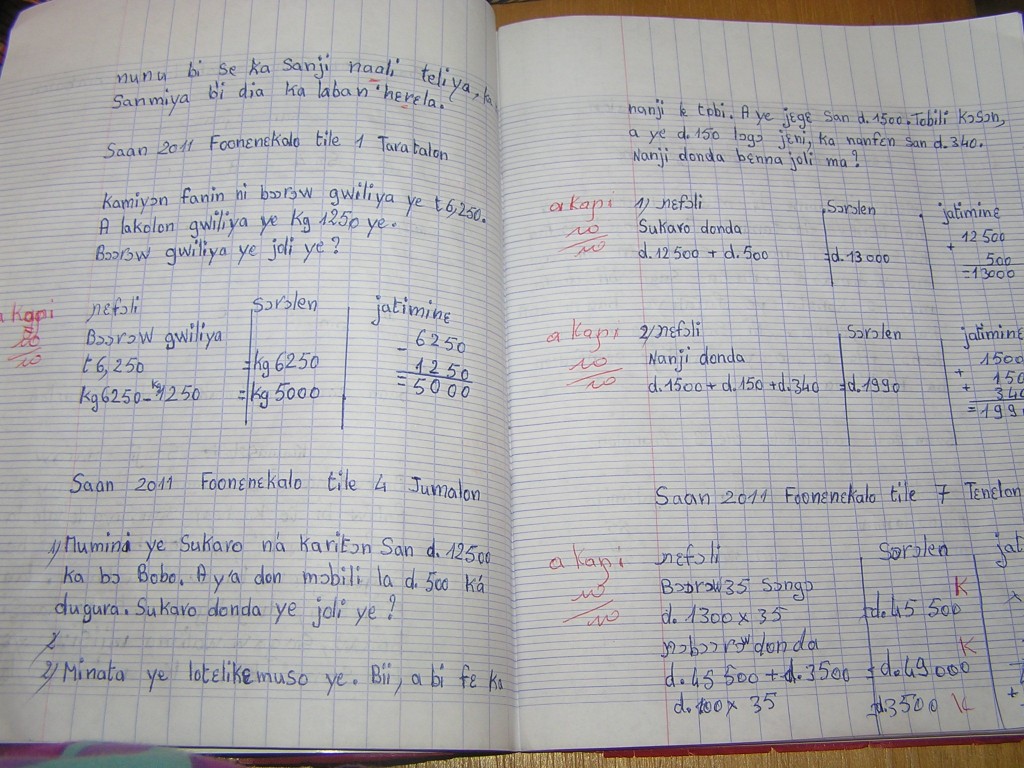 nunu bi se ka sanji naali teliya, ka
sanmiya bi dia ka laban hɛrɛla.
Saan 2011 Foonɛnɛkalo tile 1 Taratalon
Kamiyɔn fanin ni bɔɔrɔw gwiliya ye t 6,250.
A lakolon gwiliya ye Kg 1250 ye.
Bɔɔrɔw gwiliya ye joli ye?
a kaɲi
10
10
ɲɛfɔli sɔrɔlen jatiminɛ
Bɔɔrɔw gwiliya
t6,250 =kg 6250
Kg6250-kg1250 =kg 5000
6250
- 1250
=5000
Saan 2011 Foonɛnɛkalo tile 4 Jumalon
1) Mumini ye sukaro n'a karitɔn san d.12500
ka bɔ Bobo. A y'a don mɔbili la d.500 ká
dugura. Sukaro donda ye joli ye?
2
2) Minata ye lotɛlikɛmuso ye. Bii, a bi fɛ ka
nanji kɛ tobi. A ye jɛgɛ san d.1500. Tobili kɔsɔn,
a ye d.150 lɔgɔ jɛni, ka nanfɛn san d.340.
Nanji donda bɛnna joli ma?
a kaɲi
10
10
1) ɲɛfɔli sɔrɔlen jatiminɛ
Sukaro donda
d.12500 + d.500 =d.13000
12500
+ 500
=13000
a kaɲi
10
10
2) ɲɛfɔli sɔrɔlen jatiminɛ
Nanji donda
d.1500 + d.150 + d.340 =d.1990
1500
+ 150
+ 340
=199
Saan 2011 Foonɛnɛkalo tile 7 Tɛnɛlon
a kaɲi
10
10
ɲɛfɔli sɔrɔlen jat
Bɔɔrɔw 35 sɔngɔ K
d.1300 x 35 =d.45 500
ɲɔbɔɔrɔw donda K
d.45 500 + d.3500 =d.49000
d.100 x 35 =d3500 K